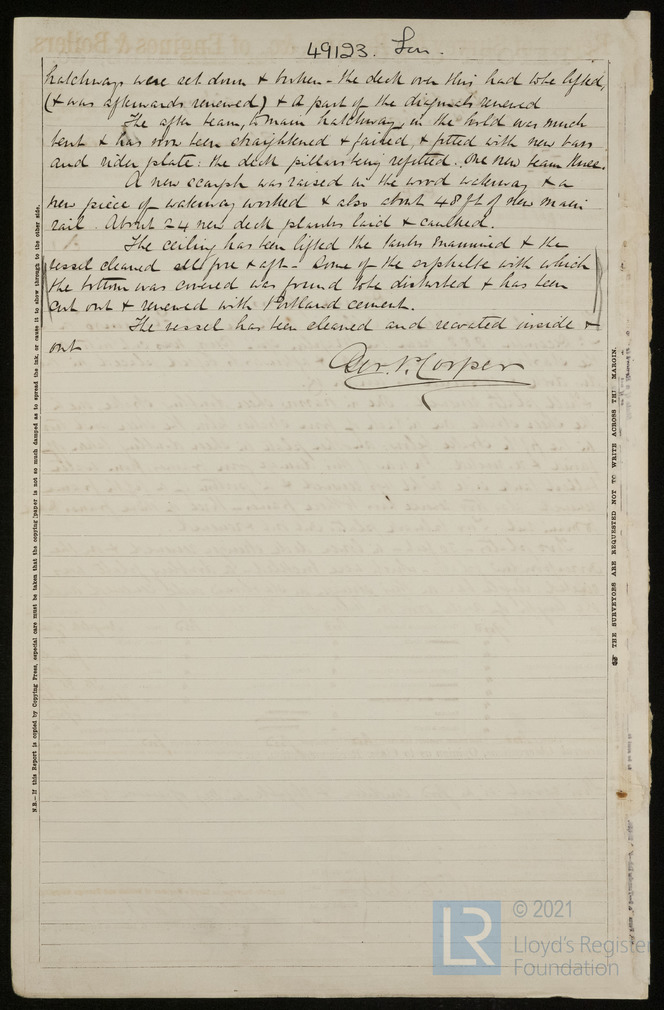 49123. Lon.
hatchways were set down & broken - the deck over this had to be lifted,
(& was afterwards renewed) & a part of the diagonals renewed
The after beam, to main hatchway, in the hold was much
bent & has now been straightened & faired, & fitted with new bars
and rider plate: the deck pillars being refitted. One new beam knee.
A new scarph was raised in the wood waterway & a
new piece of waterway worked & also about 48 ft of new main
rail. About 24 new deck planks laid & caulked.
The ceiling has been lifted the tanks mannned & the
vessel cleaned all fore & aft - Some of the asphalte with which
the bottom was covered was found to be disturbed & has been
cut out & renewed with Portland cement.
The vessel has been cleaned and recoated inside &
out
Corper
N.B.—If this Report is copied by Copying Press, especial care must be taken that the copying paper is not so much damped as to spread the ink, or cause it to show through to the other side.
THE SURVEYORS ARE REQUESTED NOT TO WRITE ACROSS THE MARGIN.
LR
© 2021
Lloyd's Register
Foundation